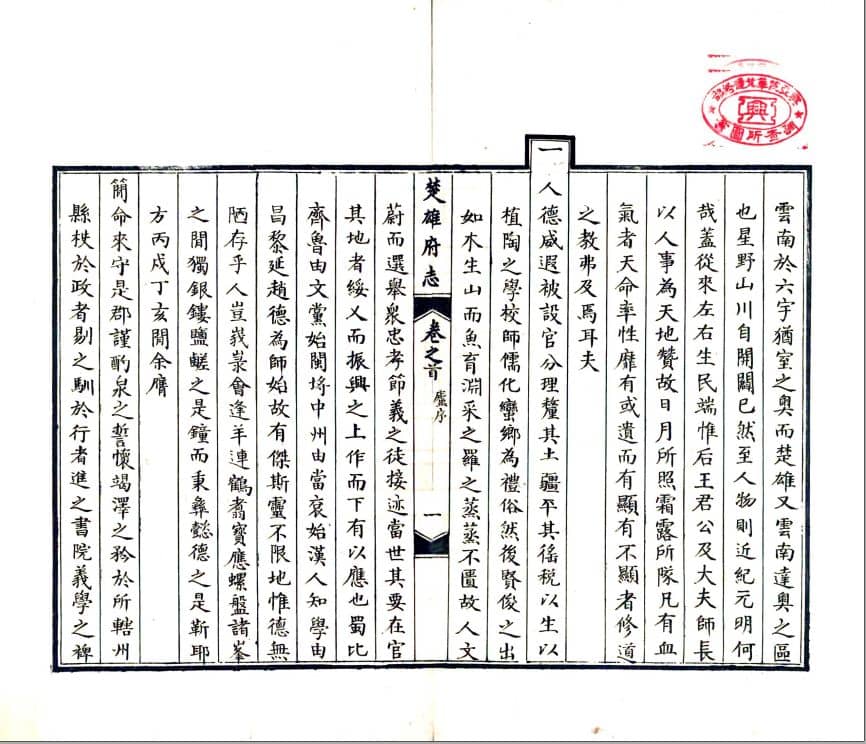 雲南於六宇猶室之奧而楚雄又雲南達奧之區
也星野山川自開闢已然至人物則近紀元明何
哉蓋從來左右生民端惟后王君公及大夫師長
以人事為天地贊故日月所照霜露所隊凡有血
氣者天命率性靡有或遺而有顯有不顯者修道
之教弗及焉耳夫
一人德威遐被設官分理釐其土疆平其徭稅以生以
植陶之學校師儒化蠻鄉為禮俗然後賢俊之出
如木生山而魚育淵采之羅之蒸蒸不匱故人文
楚雄府志 卷之首 廬序 一
蔚而選舉衆忠孝節義之徒接迹當世其要在官
其地者綏乂而振興之上作而下有以應也蜀比
齊魯由文黨始閩埒中州由當衮始漢人知學由
昌黎延趙德為師始故有傑斯靈不限地惟德無
陋存乎人豈峩彔會逢羊連鶴翥寶應螺盤諸峯
之閒獨銀鏤鹽鹺之是鐘而秉彝懿德之是靳耶
方丙戌丁亥閒余膺
簡命來守是郡謹酌泉之誓懷竭澤之矜於所轄州
縣杖於政者剔之馴於行者進之書院義學之裨
興亞院華北連絡部
興
調查所圖書